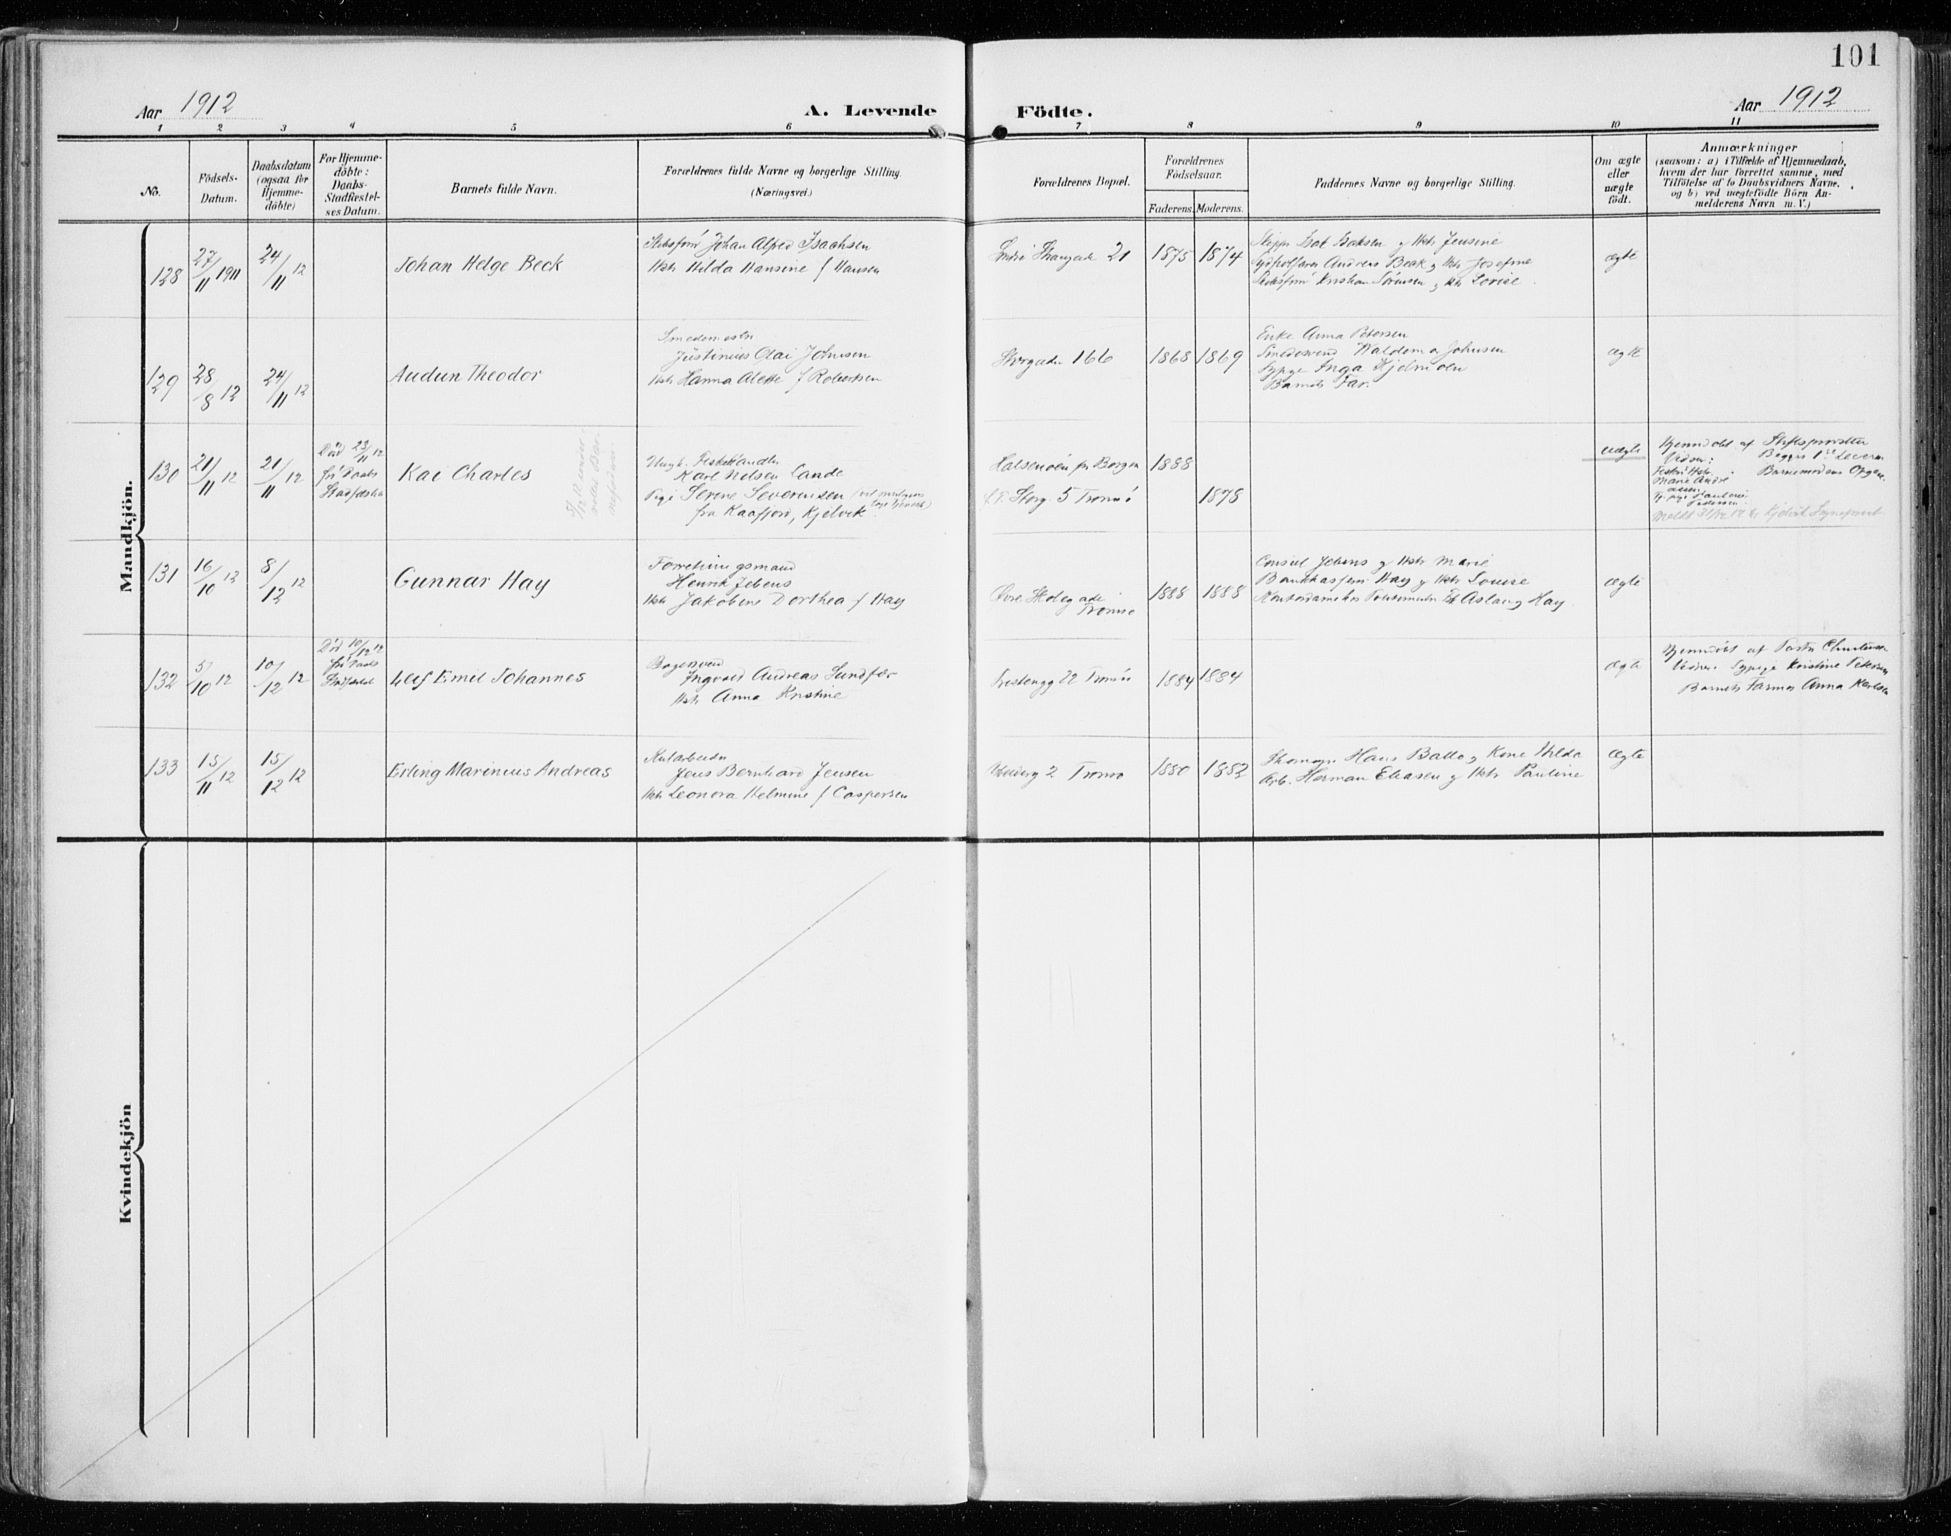 101
Aar 1912
A. Levende Födte.
Aar 1912
1 2 3 4 5 6 7 8 9 10 11
No.
Födsels-
Datum.
Daabsdatum
(ogsaa for
Hjemme-
döbte)
For Hjemme-
döbte:
Daabs-
Stadfæstel-
ses Datum.
Barnets fulde Navn.
Forældrenes fulde Navne og borgerlige Stilling.
(Næringsvei)
Forældrenes Bopæl.
Forældrenes
Födselsaar.
Faderens. Moderens.
Faddernes Navne og borgerlige Stilling.
Om ægte
eller
uægte
födt.
Anmærkninger
(saasom: a) i Tilfælde af Hjemmedaab,
hvem der har forrettet samme, med
Tilföielse af to Daabsvidners Navne,
og b) ved uægtefödte Börn An-
melderens Navn m. V.)
Mandkjön.
128
27/11 1911
24/11 12
Johan Helge Beck
Johan Alfred Isachsen
Hstr Hilda Hansine f Hansen
21
1875 1874
Isak Isaksen og Hstr Jensine
Andreas Beck og Hstr Josefine
Kristian Sörensen og Hstr Lovise
ægte
129
28/8 12
24/11 12
Audun Theodor
Smedemester
Justinius Olai Johnsen
Hstr Hanna Alette f Robertsen
Storgaden 166
1868 1869
Enke Anna Petersen
Smedesvend Waldemar Johnsen
Inga
Barnets Far.
ægte
130
21/11 12
21/11 12
Död 23/11 12
för Daabs
Stadfæstelse
Kai Charles
Ungk. Fiskehandler
Karl Nelsen Lande
Pige Serine Severinsen
fra Kaafjord, Kjelvik
Bergen
Storg. 5 Tromsö
1888
1878
uægte
Hjemmdöbt af Stiftsprovsten
Vidner:
131
16/10 12
8/12 12
Gunnar Hay
Forretningsmand
Henrik Jebens
Hstr Jakobine Dorthea f Hay
Övre Skolegade
Tromsö
1888 1888
Consul Jebens og Hstr Marie
Bankkasserer Hay og Hstr Louise
Aslaug Hay
ægte
132
5/10 12
10/12 12
Död 10/12 12
för Daabs
Stadfæstel
Leif Emil Johannes
Bagersvend
Ingvald Andreas Sundfær
Hstr Anna Kristine
22 Tromsö
1884 1884
ægte
Hjemmdöbt af Pastor
Vidner: Sypige Kristine Petersen
Barnets Farmor Anna Karlsen
133
15/11 12
15/12 12
Erling Marinius Andreas
Jens Bernhard Jensen
Hstr Leonora Helmine f Caspersen
2 Tromsö
1880 1882
Hans Balto og Kone Hilda
Arb. Herman Eliasen og Hstr Pauline
ægte
Kvindekjön